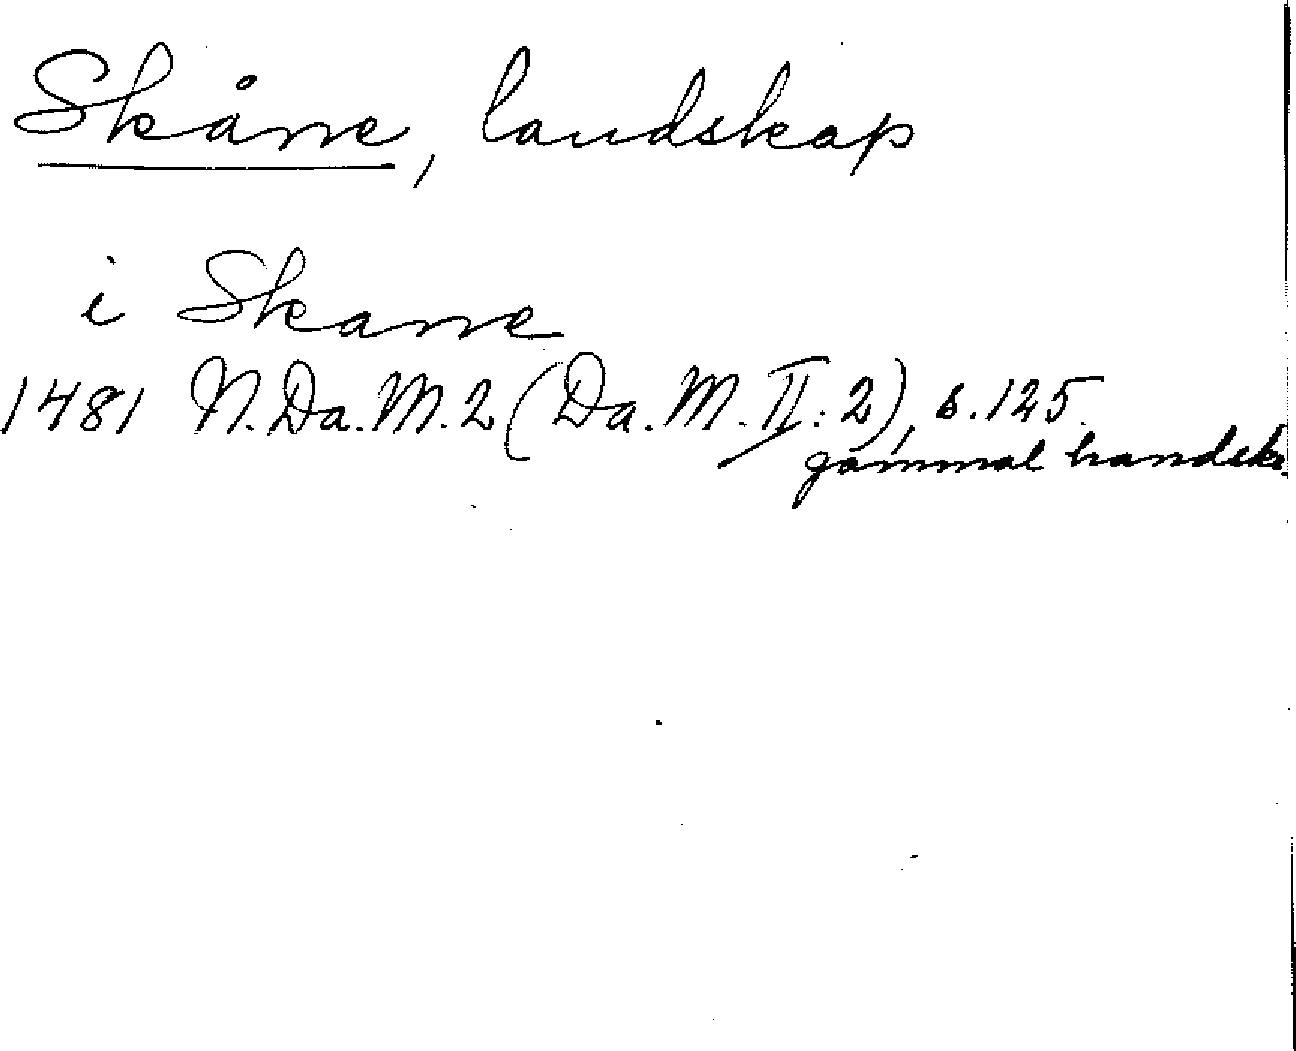 Skåne, landskap
i Skane
1481 N.Da.M.2 (Da.M.II:2), s.125.
gammal handskr.